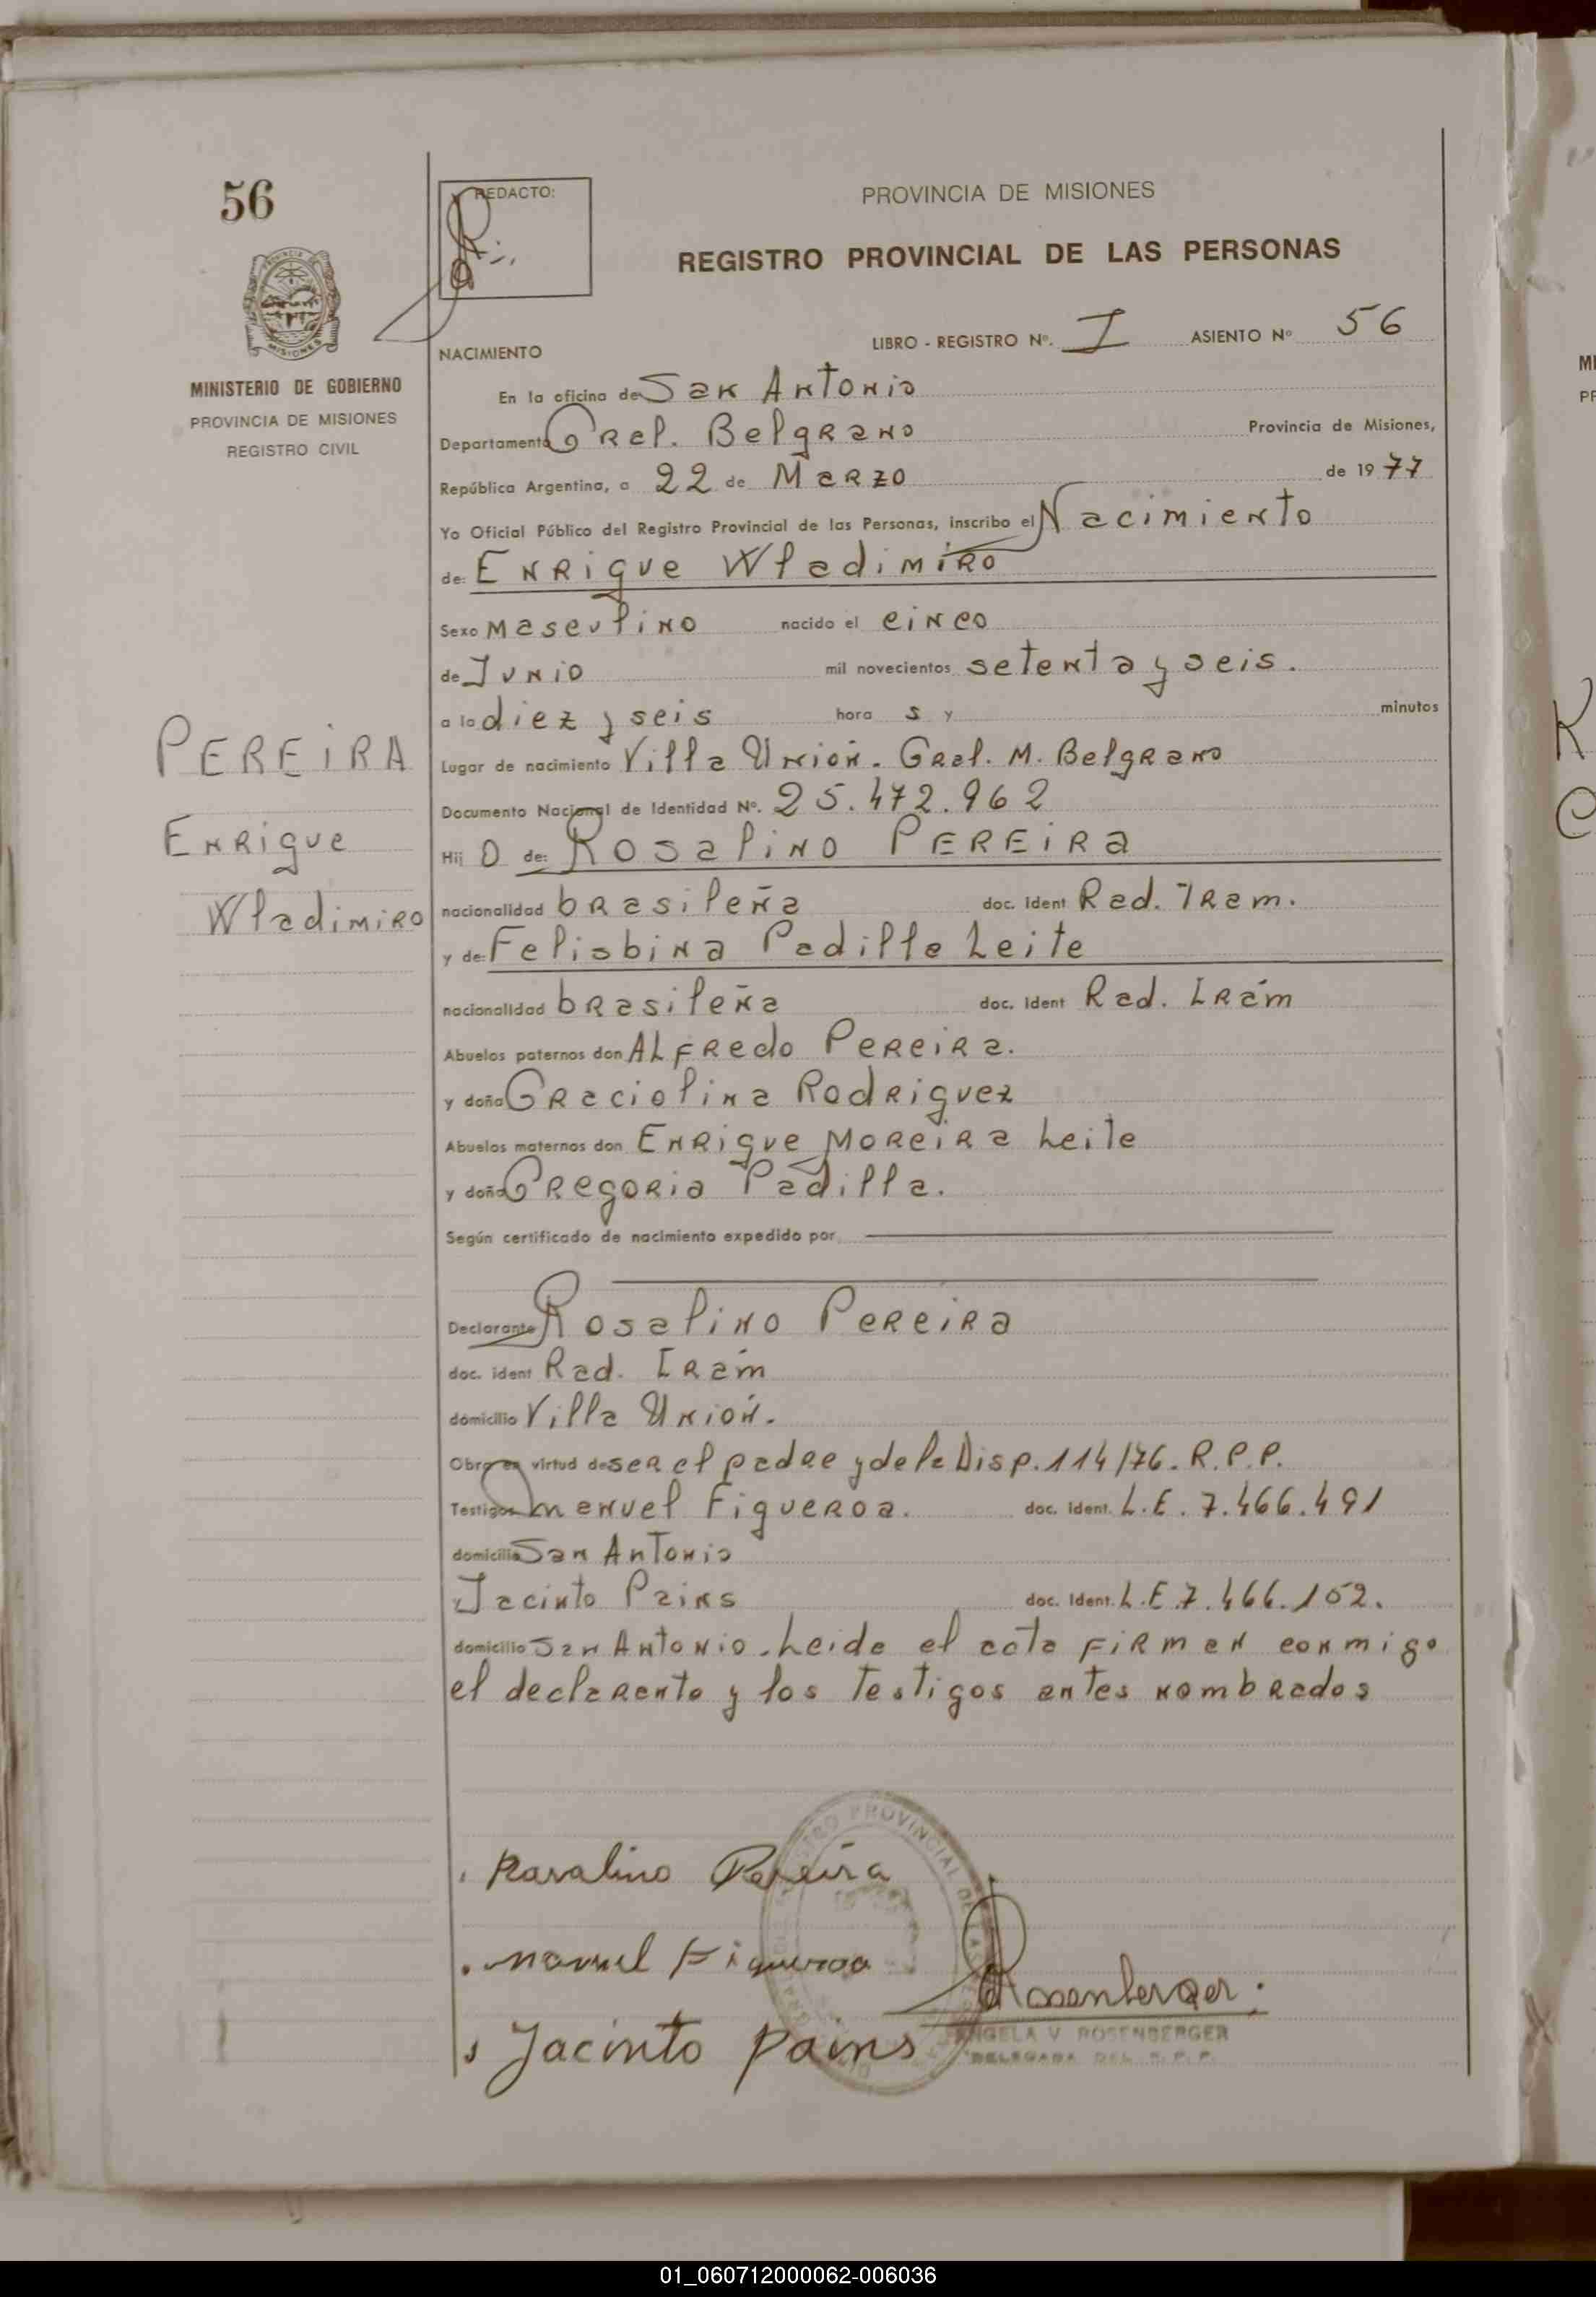 56
REDACTO:
PROVINCIA DE MISIONES
REGISTRO PROVINCIAL DE LAS PERSONAS
MISIONES
MINISTERIO DE GOBIERNO
PROVINCIA DE MISIONES
REGISTRO CIVIL
LIBRO - REGISTRO Nº. I ASIENTO Nº 56
NACIMIENTO
En la oficina de San Antonio
Departamento Gral. Belgrano Provincia de Misiones,
República Argentina, a 22 de Marzo de 1977
Yo Oficial Público del Registro Provincial de las Personas, inscribo el Nacimiento
de: Enrique Wladimiro
Sexo masculino nacido el cinco
de Junio mil novecientos setenta y seis.
a la diez y seis hora s y minutos
PEREIRA
Enrique
Wladimiro
Lugar de nacimiento Villa Unión. Gral. M. Belgrano
Documento Nacional de Identidad Nº. 25.472.962
Hij o de: Rosalino PEREIRA
nacionalidad brasileña doc. ident Rad. Tram.
y de: Felisbina Padilla Leite
nacionalidad brasileña doc. ident Rad. Trám
Abuelos paternos don Alfredo Pereira.
y doña Graciolina Rodriguez
Abuelos maternos don Enrique Moreira Leite
y doña Gregoria Padilla.
Según certificado de nacimiento expedido por
Declarante Rosalino Pereira
doc. ident Rad. Trám
domicilio Villa Unión.
Obra en virtud de ser el padre y de la Disp. 114/76. R.P.P.
Testigos Manuel Figueroa. doc. ident. L.E. 7.466.491
domicilio San Antonio
Jacinto Pains doc. ident. L.E 7.466.152.
domicilio San Antonio. Leida el acta firman conmigo
el declarante y los testigos antes nombrados
Rosalino Pereira
Manuel Figueroa
Rosenberger.
Jacinto Pains
ANGELA V ROSENBERGER
DELEGADA DEL R.P.P.
REGISTRO PROVINCIAL DE LAS
01_060712000062-006036